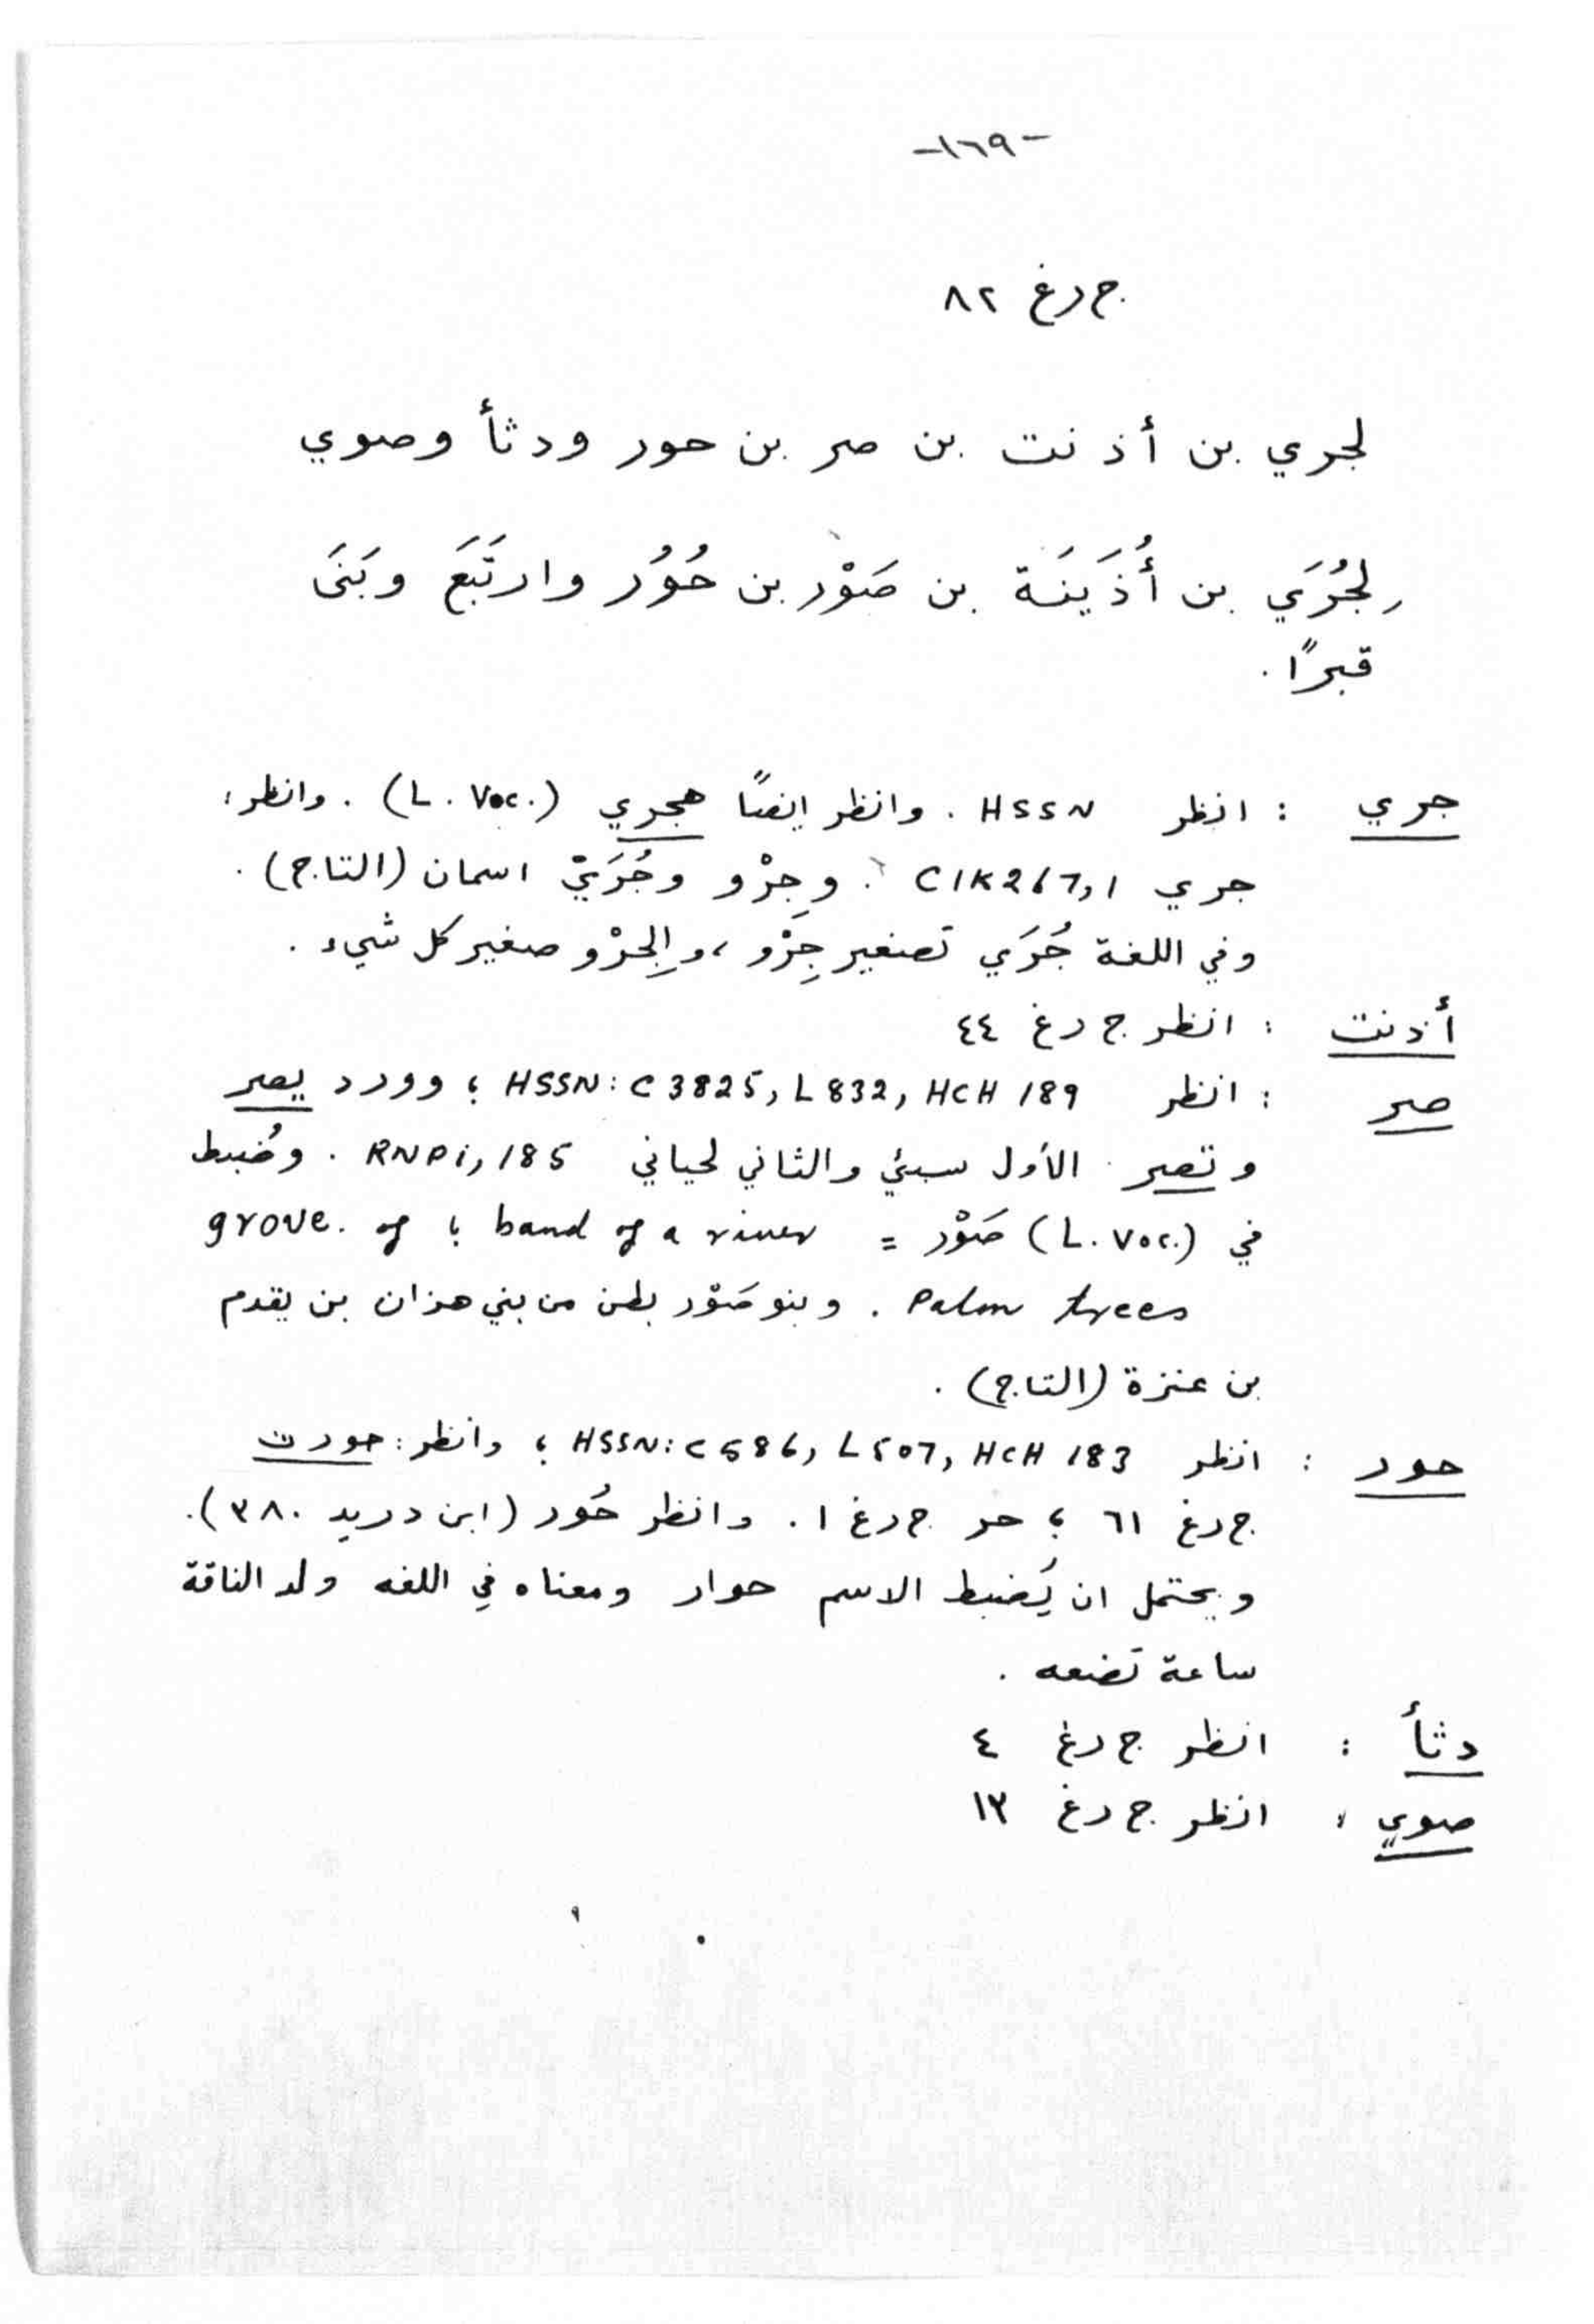 -١٦٩-
ج رغ ٨٢
لجري بن أذنت بن صر بن حور ودثأ وصوي
لِجُرَي بن أُذَينَة بن صَوْر بن حُوُر وارتَبَعَ وبَنَى
قبرًا .
جري : انظر HSSN . وانظر ايضًا هجري (L. Voc.) . وانظر :
جري CIK 267,1 . وجِرْو وجُرَيّ اسمان (التاج) .
وفي اللغة جُرَي تصغير جِرْو ، والجِرْو صغير كل شيء .
أذنت : انظر ج رغ ٤٤
صر : انظر HSSN: C 3825, L 832, HCH 189 ؛ وورد يصر
وتصر الأول سبئي والثاني لحياني RNP i, 185 . وضُبط
في (L. Voc.) صَوْر = band of a river ؛ grove of
Palm trees . وبنو صَوْر بطن من بني هزان بن يقدم
بن عنزة (التاج) .
حور : انظر HSSN: C 586, L 507, HCH 183 ؛ وانظر : حورت
ج رغ ٦١ ؛ حر ج رغ ١ . وانظر حُور (ابن دريد ٣٨٠) .
ويحتمل ان يُضبط الاسم حوار ومعناه في اللغه ولد الناقة
ساعة تضعه .
دثأ : انظر ج رغ ٤
صوي : انظر ج رغ ١٣